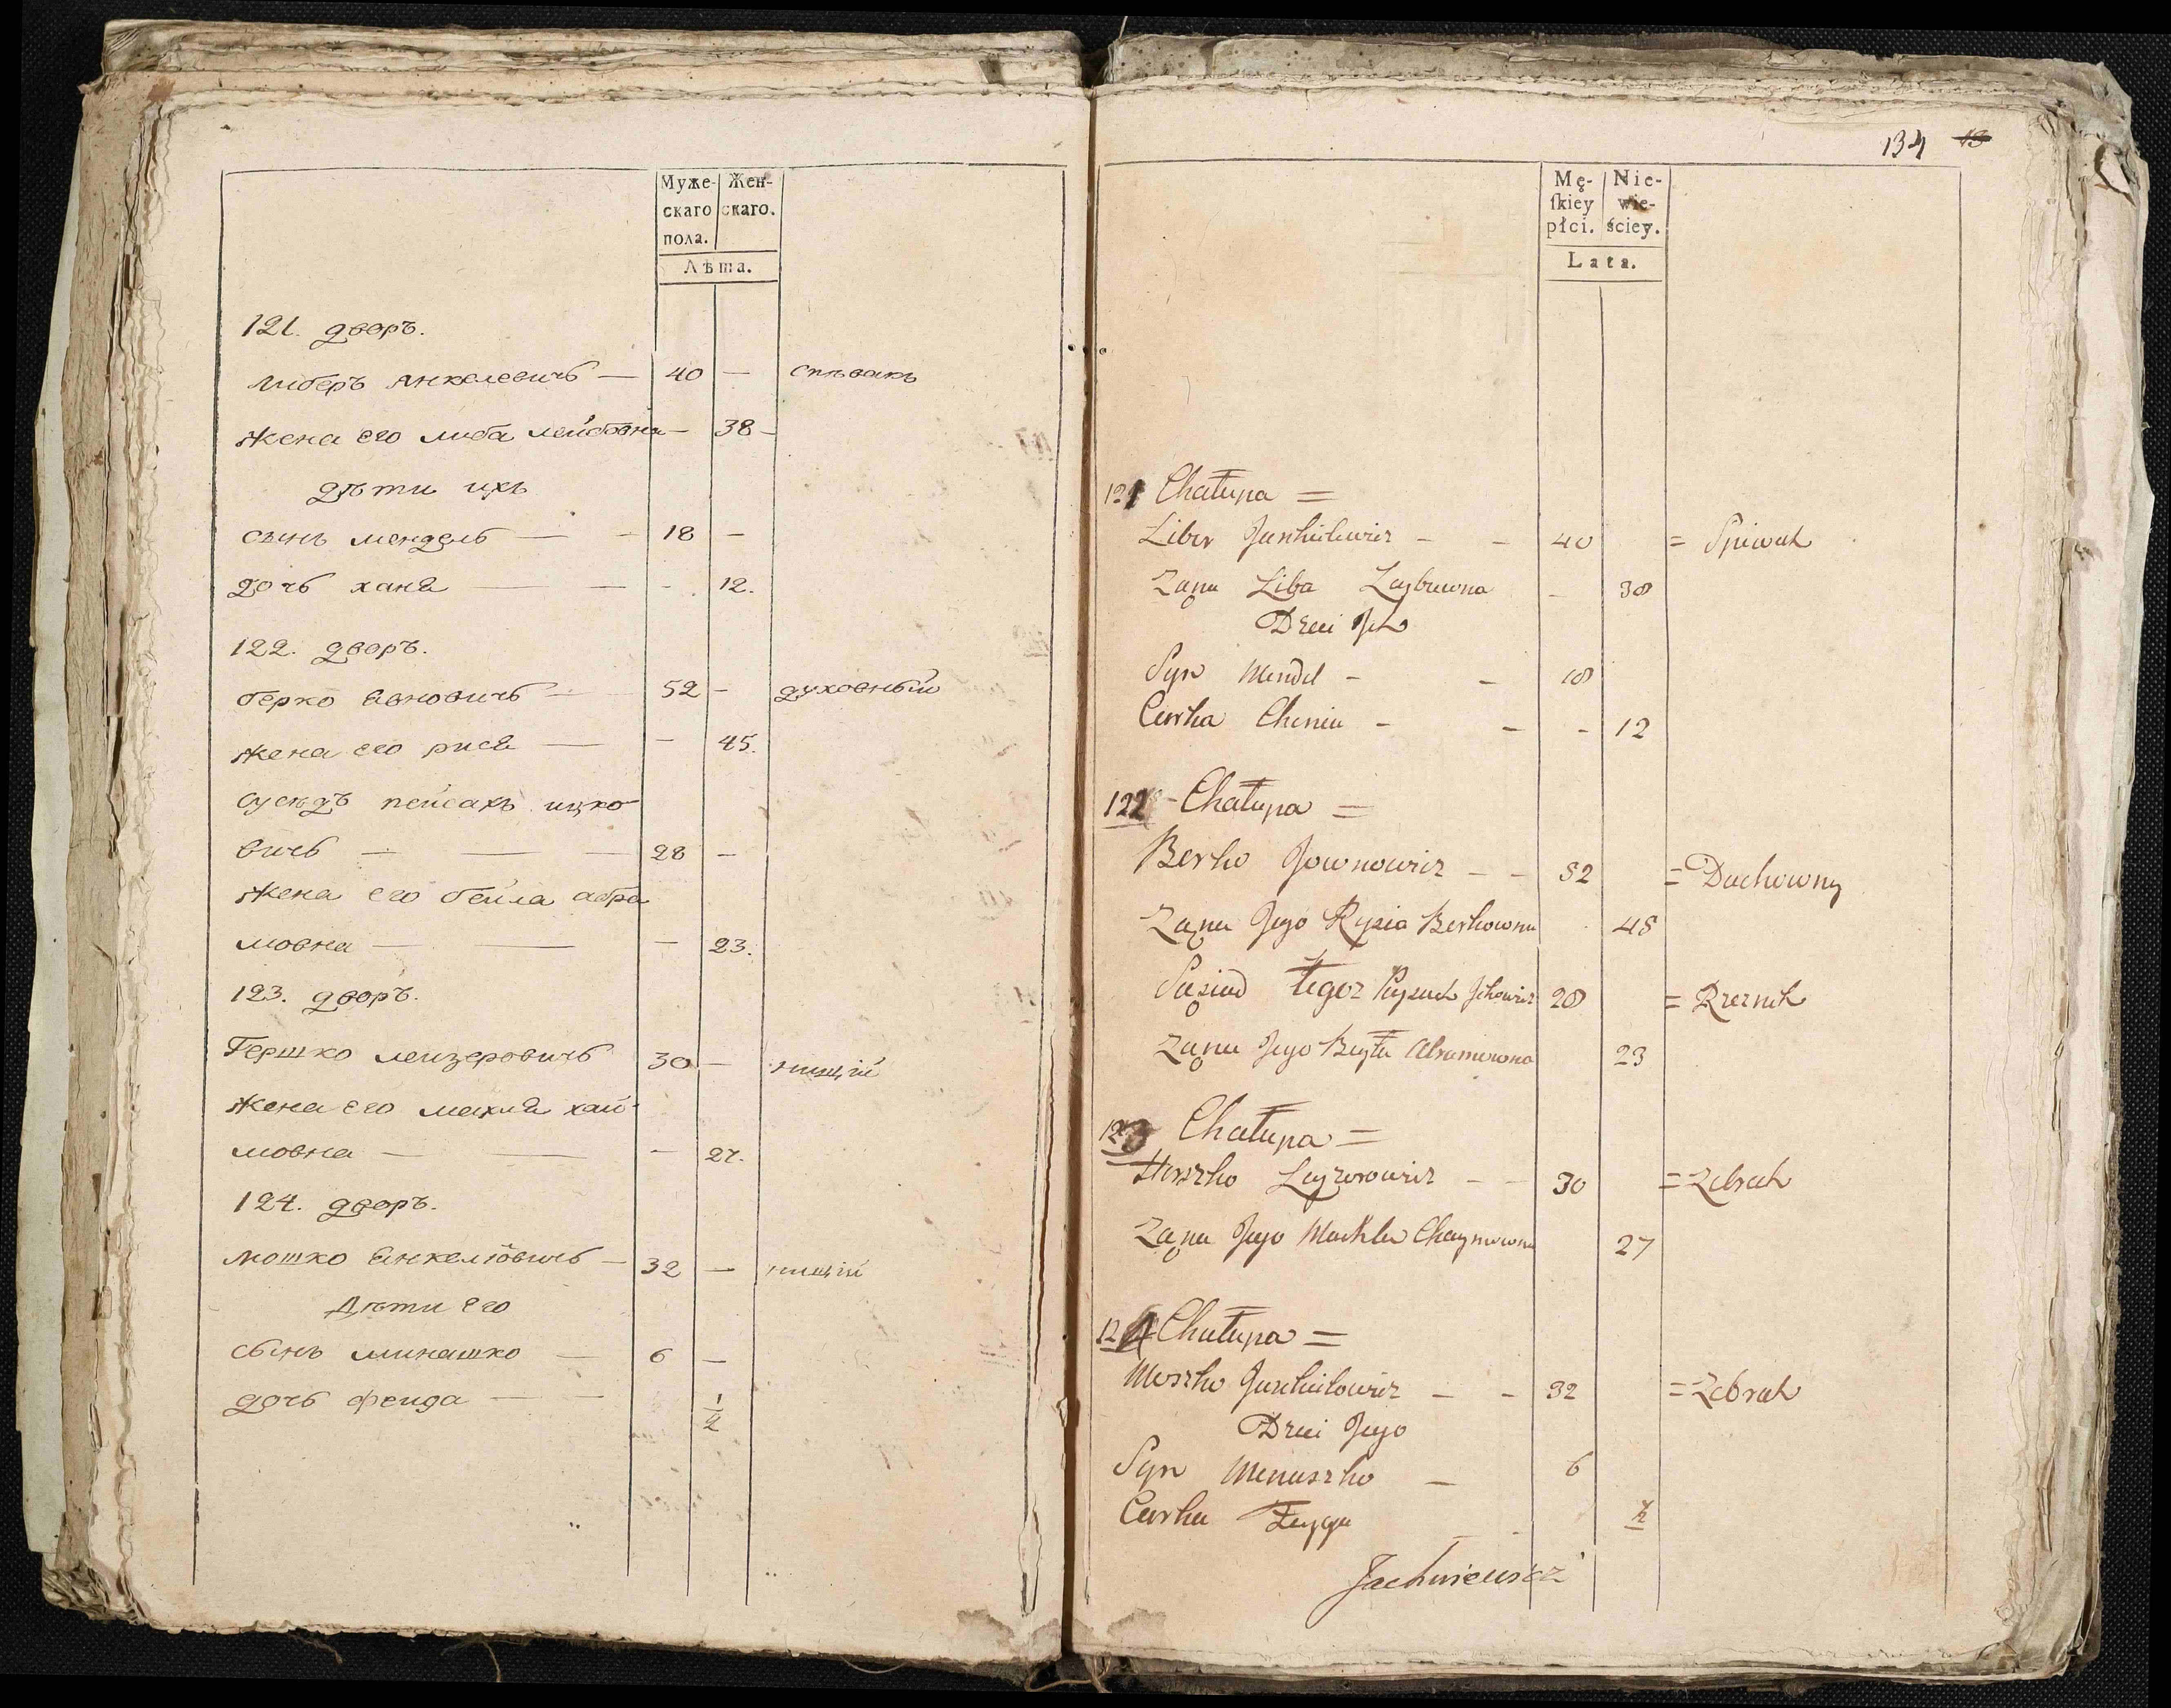 Муже-
скаго
пола.
Жен-
скаго.
Лѣта.
121. дворъ.
либеръ янкелевичъ — 40 — спѣвакъ
жена его либа лейбовна — 38 -
дѣти ихъ
сынъ мендель — - 18 -
дочь ханя — — - 12.
122. дворъ.
берко евновичъ — 52 - духовный
жена его рися — - 45.
сусѣдъ пейсахъ ицко-
вичъ — — — 28 -
жена его бейла абра
мовна — — - 23.
123. дворъ.
Гершко лейзеровичъ 30 — нищій
жена его махля хай-
мовна — — - 27.
124. дворъ.
мошко янкелювичъ — 32 — нищій
Дѣти его
сынъ минашко — 6 —
дочь фейда — — 1/2
134 13
Mę-
ſkiey
płci.
Nie-
wie-
ściey.
Lata.
121 Chałupa =
Liber Jankielewicz - - 40 = Spiewak
Żąna Liba Leybowna - 38
Dzieci Ich
Syn Mendel - - 18
Curka Chania - - - 12
122 - Chałupa =
Berko Jownowicz - - 52 = Duchowny
Żąna Jego Rysia Berkowna 45
Sąsiad tegoz Peysach Ickowicz 28 = Rzeznik
Żąna Jego Beyła Abramowna 23
123 Chałupa =
Herszko Leyzerowicz - - 30 = Zebrak
Żąna Jego Machla Chaymowna 27
124 Chałupa =
Moszko Jankielowicz - - 32 = Zebrak
Dzieci Jego
Syn Minaszko - 6
Curka Feyga - - 1/2
Jachniewicz